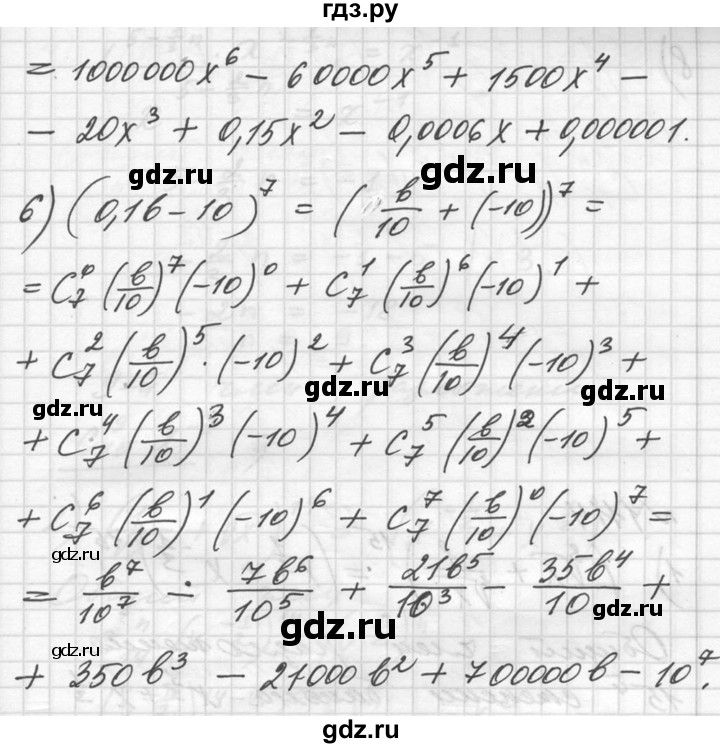 гдз.ру
= 1000000x⁶ − 60000x⁵ + 1500x⁴ −
− 20x³ + 0,15x² − 0,0006x + 0,000001.
gdz.ru gdz.ru
6) (0,1в − 10)⁷ = (в/10 + (−10))⁷ =
= C₇⁰ (в/10)⁷ (−10)⁰ + C₇¹ (в/10)⁶ (−10)¹ +
+ C₇² (в/10)⁵ · (−10)² + C₇³ (в/10)⁴ (−10)³ +
gdz.ru gdz.ru gdz.ru
+ C₇⁴ (в/10)³ (−10)⁴ + C₇⁵ (в/10)² (−10)⁵ +
+ C₇⁶ (в/10)¹ (−10)⁶ + C₇⁷ (в/10)⁰ (−10)⁷ =
gdz.ru gdz.ru
= в⁷/10⁷ − 7в⁶/10⁵ + 21в⁵/10³ − 35в⁴/10 +
gdz.ru gdz.ru
gdz.ru
+ 350в³ − 21000в² + 700000в − 10⁷.
gdz.ru